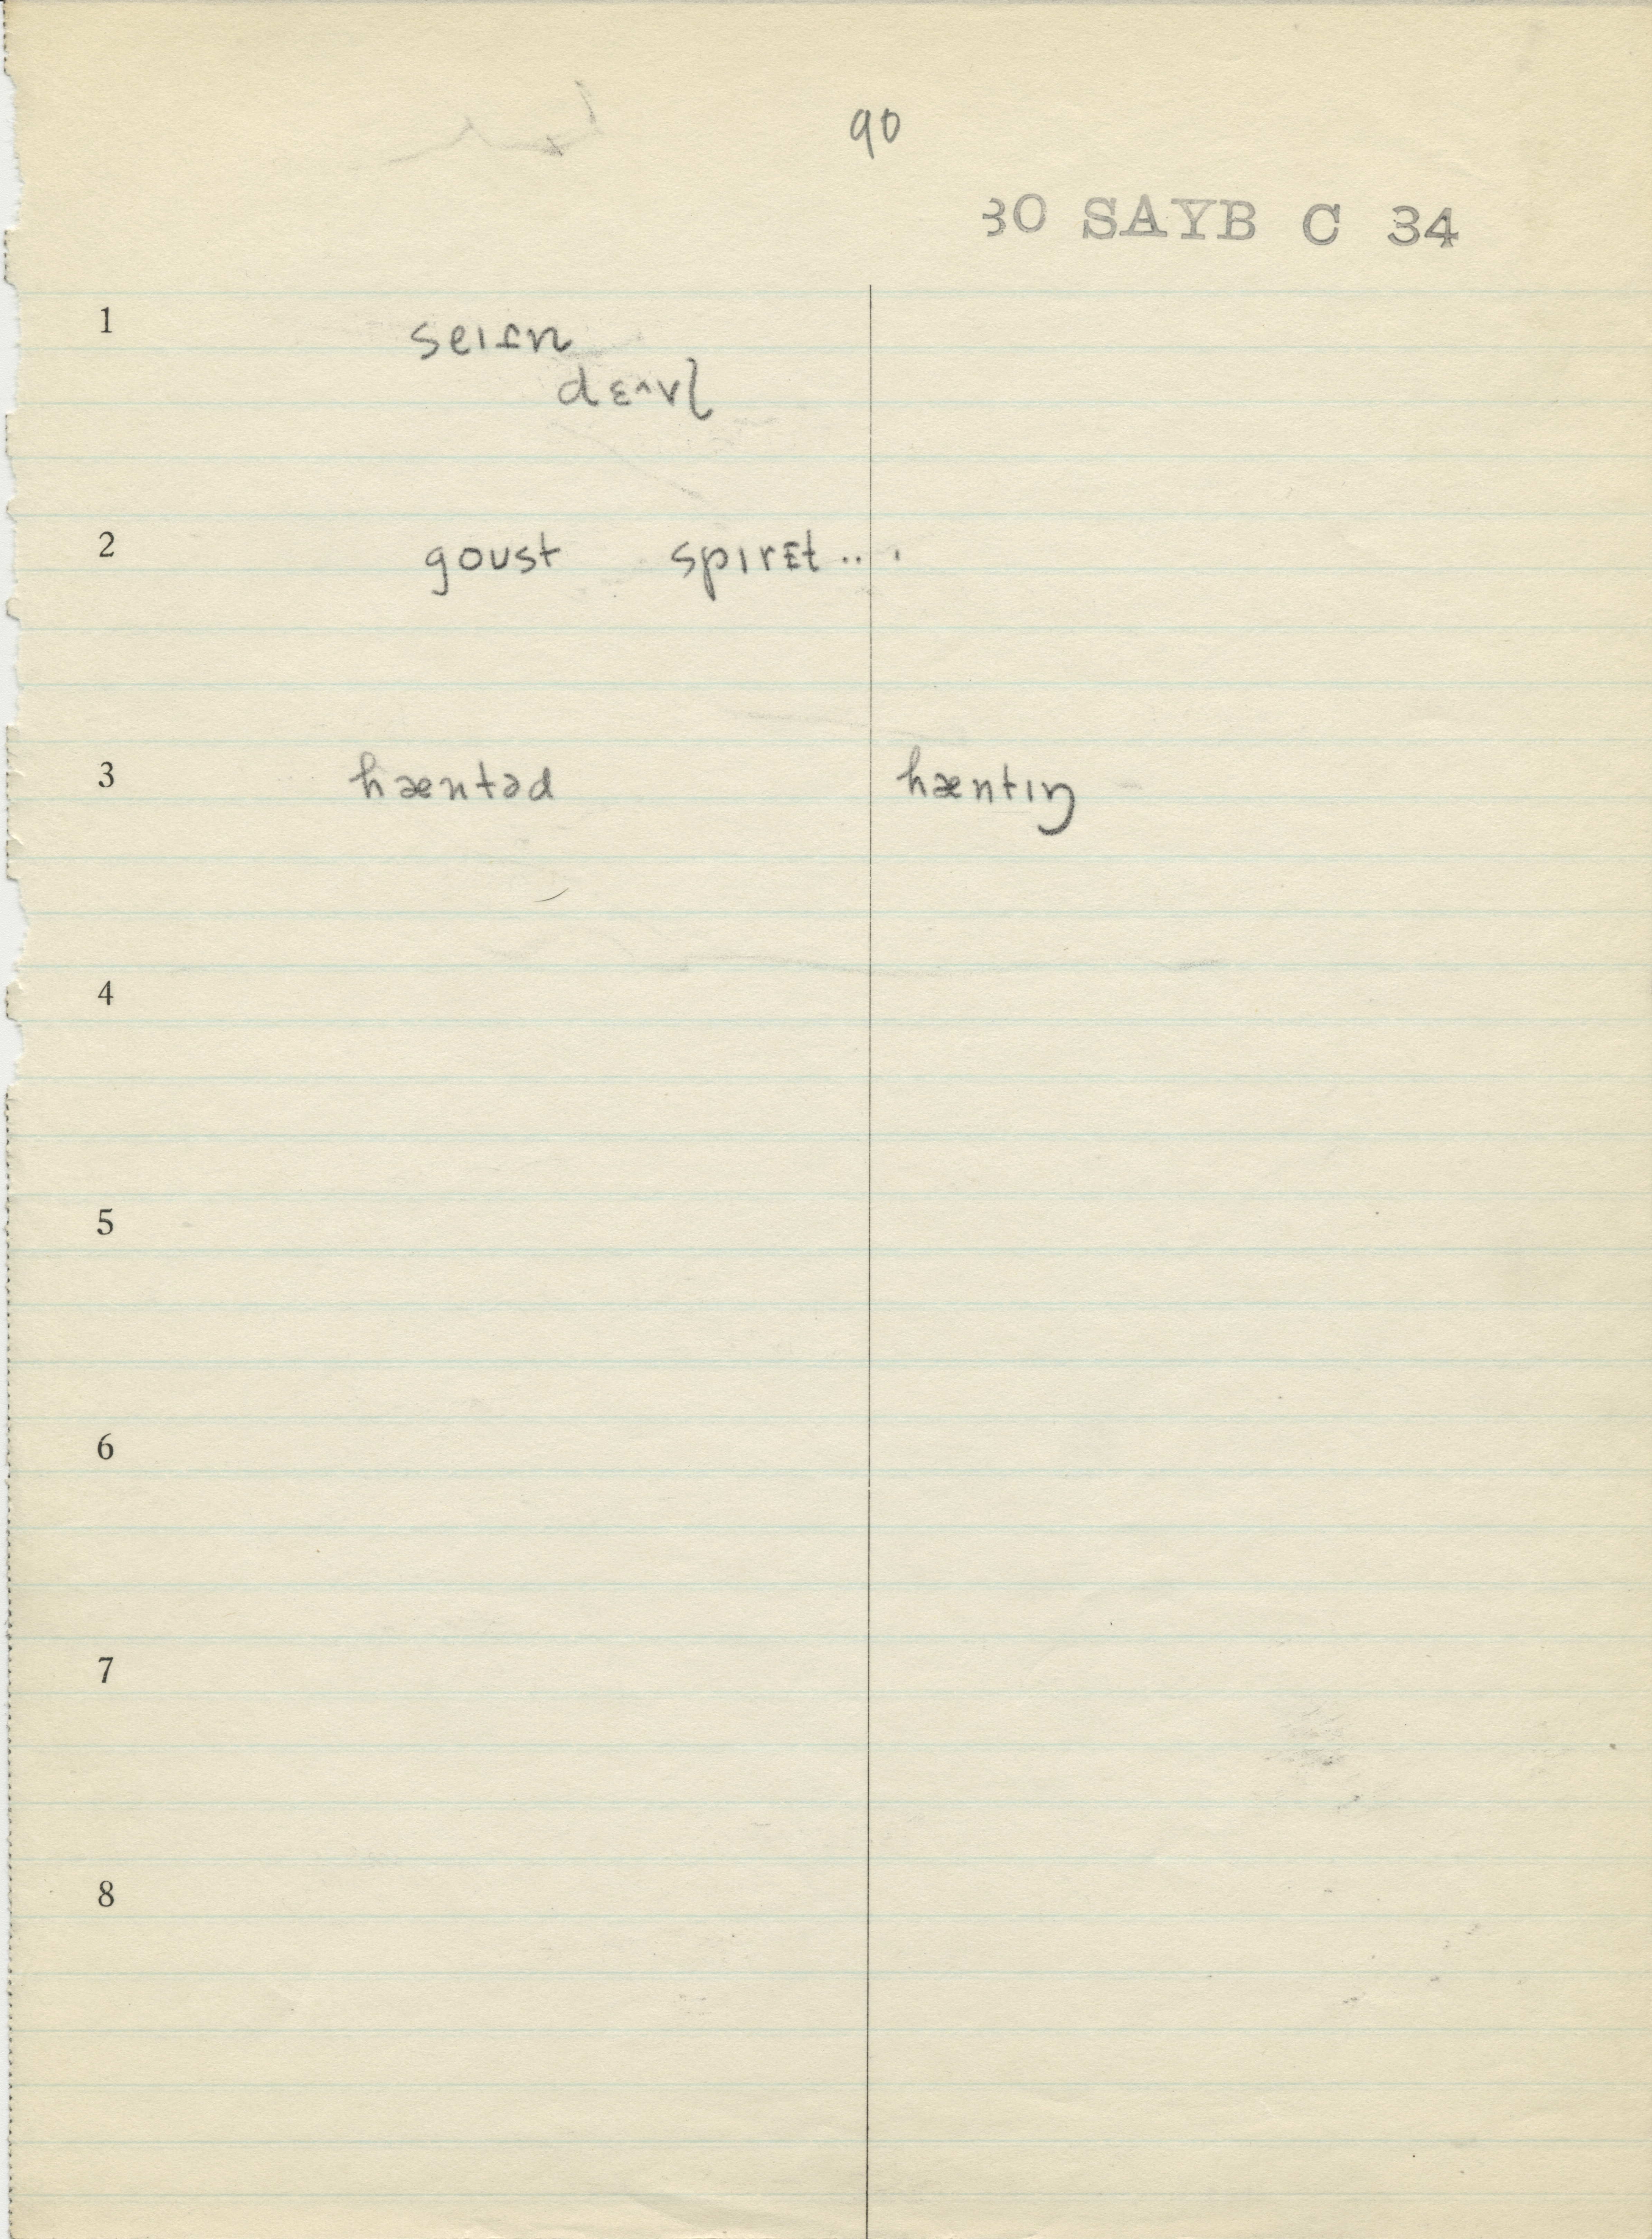 90
30 SAYB C 34
1 seitn
dɛ^vl
2 goust spirɛt ... .
3 hæntəd hæntɪŋ
4
5
6
7
8